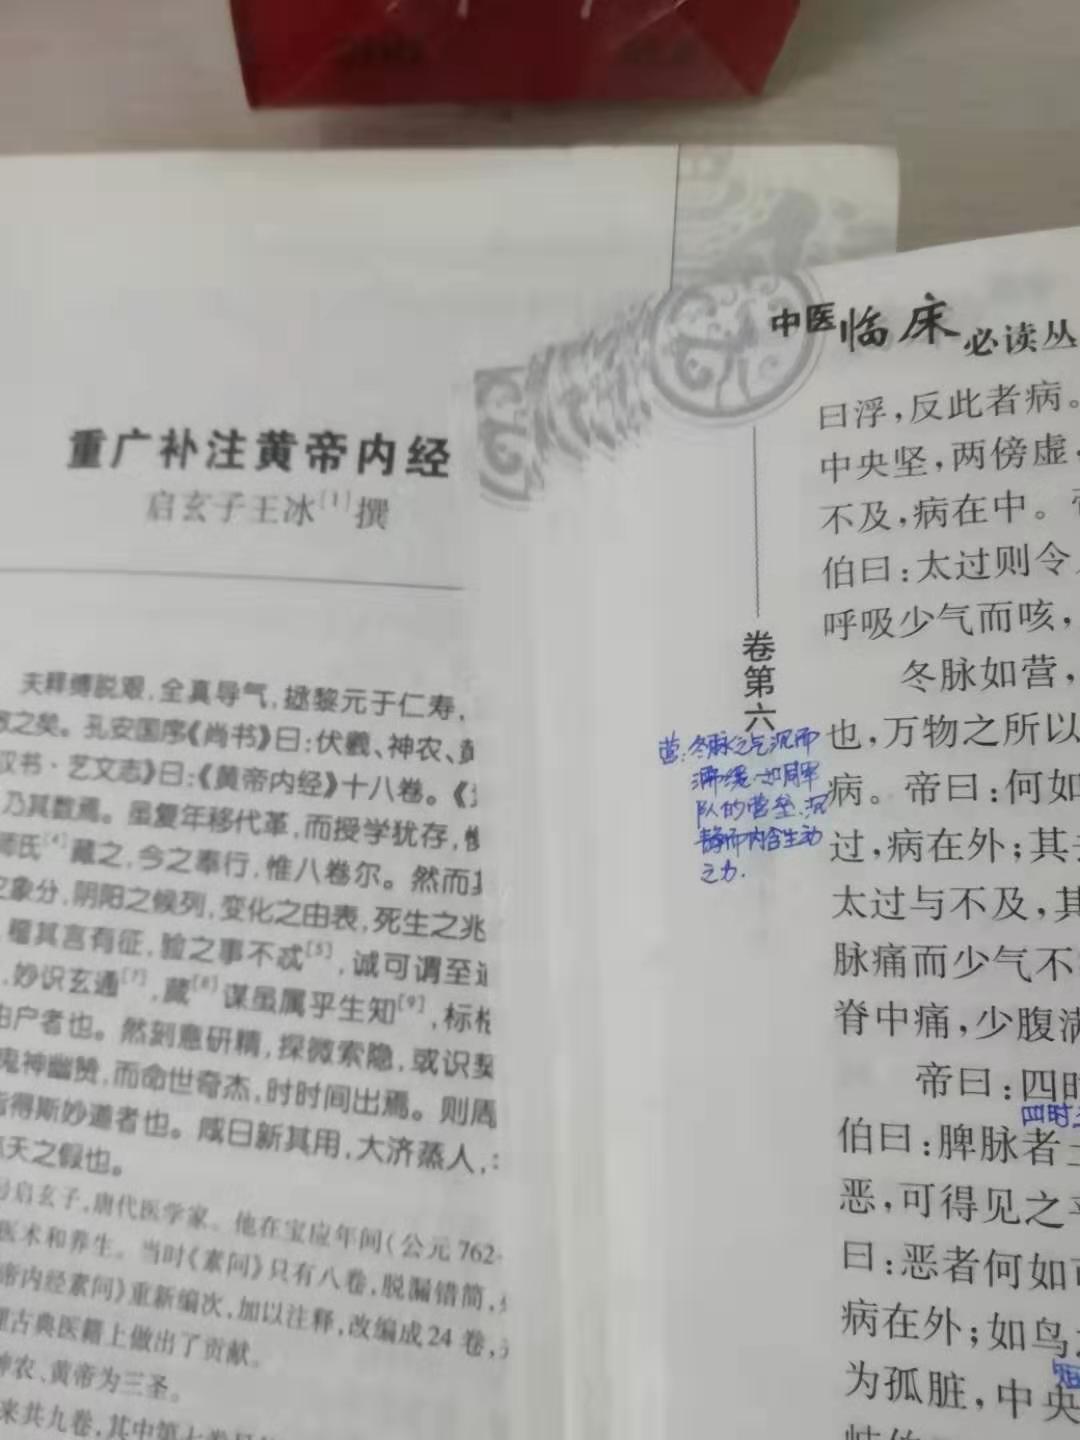 重广补注黄帝内经
启玄子王冰[1]撰
夫释缚脱艰,全真导气,拯黎元于仁寿,
之矣。孔安国序《尚书》曰:伏羲、神农、
·艺文志》曰:《黄帝内经》十八卷。《
乃其数焉。虽复年移代革,而授学犹存,
师氏[4]藏之,今之奉行,惟八卷尔。然而其
象分,阴阳之候列,变化之由表,死生之兆
稽其言有征,验之事不忒[5],诚可谓至
,妙识玄通[7],藏[8]谋虽属乎生知[9],标格
由户者也。然刻意研精,探微索隐,或识契
鬼神幽赞,而命世奇杰,时时间出焉。则周
得斯妙道者也。咸日新其用,大济蒸人,
天之假也。
号启玄子,唐代医学家。他在宝应年间(公元762-
医术和养生。当时《素问》只有八卷,脱漏错简,
帝内经素问》重新编次,加以注释,改编成24卷,
理古典医籍上做出了贡献。
神农、黄帝为三圣。
来共九卷,其中第七卷
中医临床必读丛
卷第六
营:冬脉之气沉而
濡缓,如同军
队的营垒,沉
静而内含生动
之力.
曰浮,反此者病。
中央坚,两傍虚,
不及,病在中。
伯曰:太过则令
呼吸少气而咳,
冬脉如营,
也,万物之所以
病。帝曰:何如
过,病在外;其
太过与不及,其
脉痛而少气不
脊中痛,少腹满
帝曰:四时
伯曰:脾脉者土
恶,可得见之乎
曰:恶者何如可
病在外;如鸟
为孤脏,中央